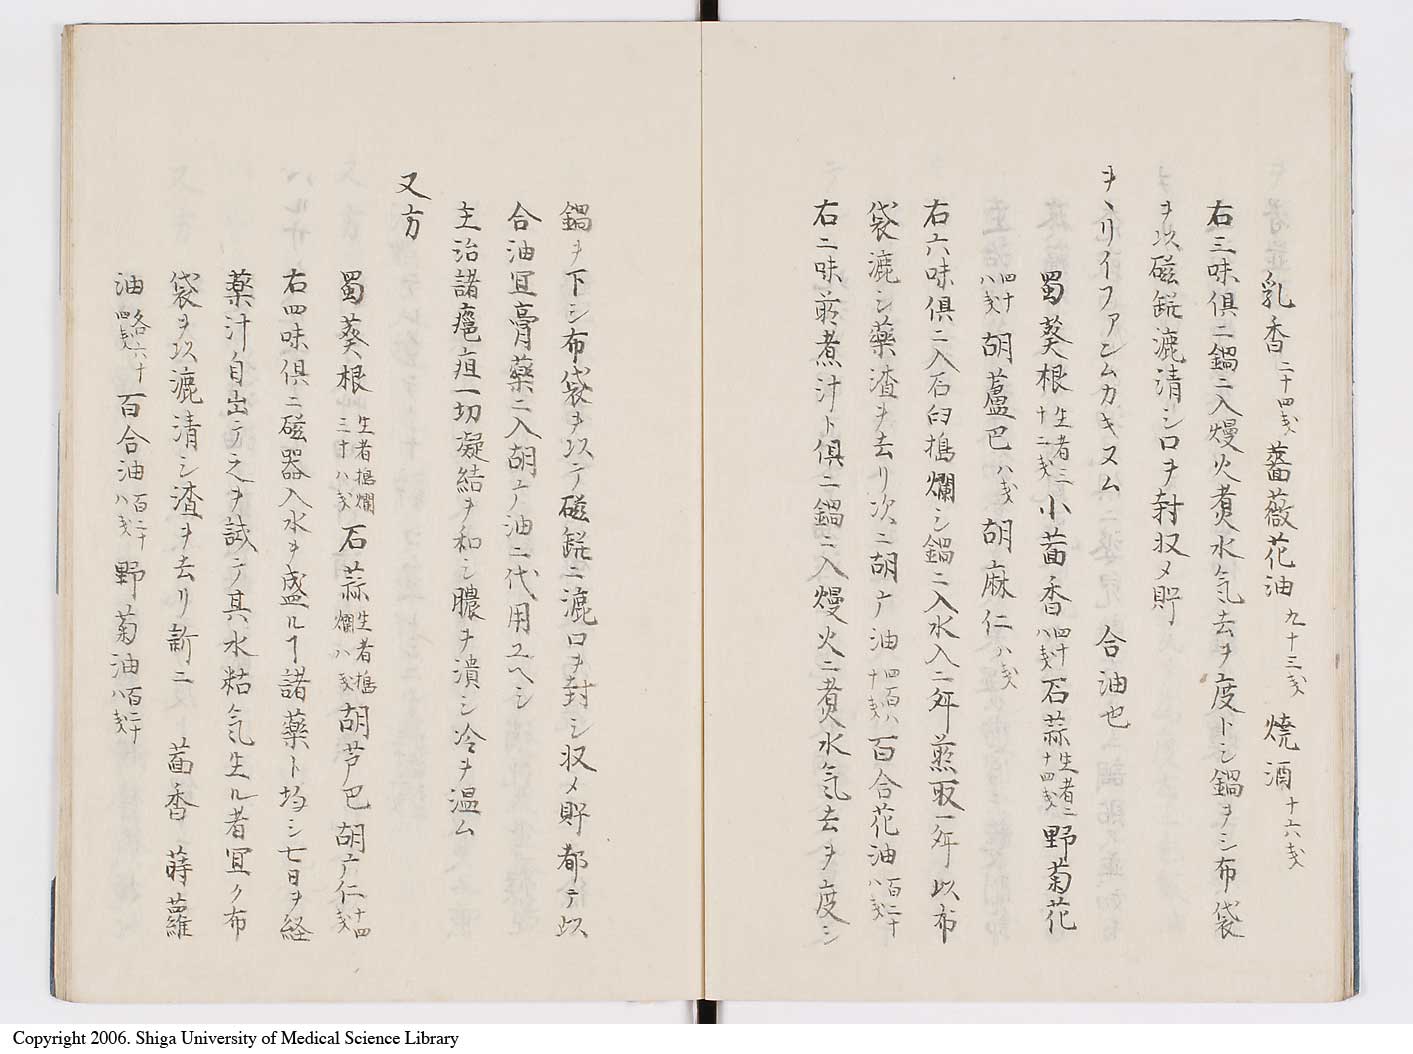 乳香二十四戔 薔薇花油九十三戔 焼酒十六戔
右三味俱ニ鍋ニ入熳火煮水气去ヲ度トシ鍋ヲヲシ布袋
ヲ以磁鋎漉清シ口ヲ封収メ貯
ヲヽリイフアンムカキヌム 合油也
蜀葵根生者三十二戔 小茴香四十八戔 石蒜生者二十四戔 野菊花
四十八戔 胡蘆巴八戔 胡麻仁八戔
右六味俱ニ入石臼搗爛シ鍋ニ入水入二舛煎取一舛以布
袋漉シ藥渣ヲ去リ次ニ胡广油四百八十戔 百合花油百二十八戔
右二味前煮汁ト俱ニ鍋ニ入熳火ニ煮水气去ヲ度シ
鍋ヲ下シ布袋ヲ以テ磁鋎ニ漉口ヲ封シ収メ貯都テ此
合油冝膏藥ニ入胡广油ニ代用ユヘシ
主治諸瘡疽一切凝結ヲ和シ膿ヲ潰シ冷ヲ温ム
又方
蜀葵根生者搗爛三十八戔 石蒜生者搗爛八戔 胡芦巴 胡广仁十四戔
右四味俱ニ磁器入水ヲ盛ルヿ諸藥ト均シ七日ヲ経
藥汁自出テ之ヲ試テ其水粘气生ル者冝ク布
袋ヲ以漉清シ渣ヲ去リ新ニ 茴香 蒔蘿
油各六十四戔 百合油百二十八戔 野菊油百二十八戔
Copyright 2006. Shiga University of Medical Science Library